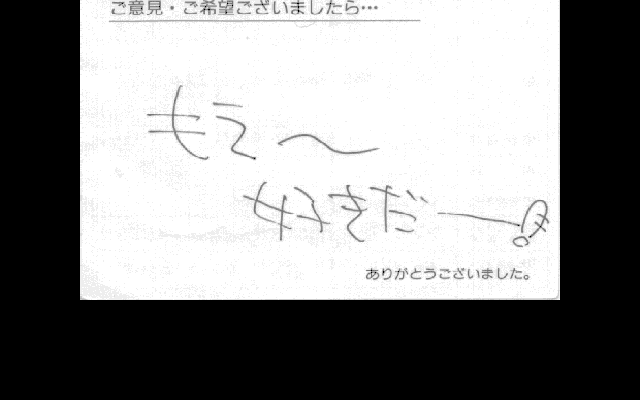 ご意見・ご希望ございましたら…
もえ〜
好きだー!
ありがとうございました。